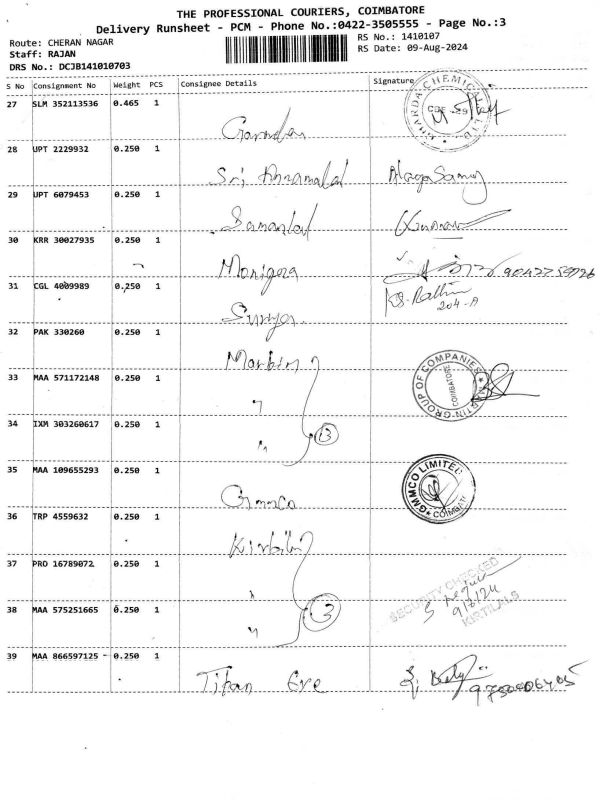 THE PROFESSIONAL COURIERS, COIMBATORE
Delivery Runsheet - PCM - Phone No.:0422-3505555 - Page No.:3
Route: CHERAN NAGAR
RS No.: 1410107
Staff: RAJAN
RS Date: 09-Aug-2024
DRS No.: DCJB141010703
S No Consignment No Weight PCS Consignee Details Signature
27 SLM 352113536 0.465 1
28 UPT 2229932 0.250 1
Sri Annamalai AlagaSamy
29 UPT 6079453 0.250 1
30 KRR 30027935 0.250 1
31 CGL 4009989 0.250 1
204-A
Surya
32 PAK 330260 0.250 1
Martin
MARTIN GROUP OF COMPANIES COIMBATORE
33 MAA 571172148 0.250 1
"
34 IXM 303260617 0.250 1
" 3
35 MAA 109655293 0.250 1
Gmmco
GMMCO LIMITED COIMBATORE
36 TRP 4559632 0.250 1
Kirtilal
37 PRO 16789072 0.250 1
"
SECURITY CHECKED
9/8/24
KIRTILALS
38 MAA 575251665 0.250 1
" 3
39 MAA 866597125 0.250 1
Titan Eye